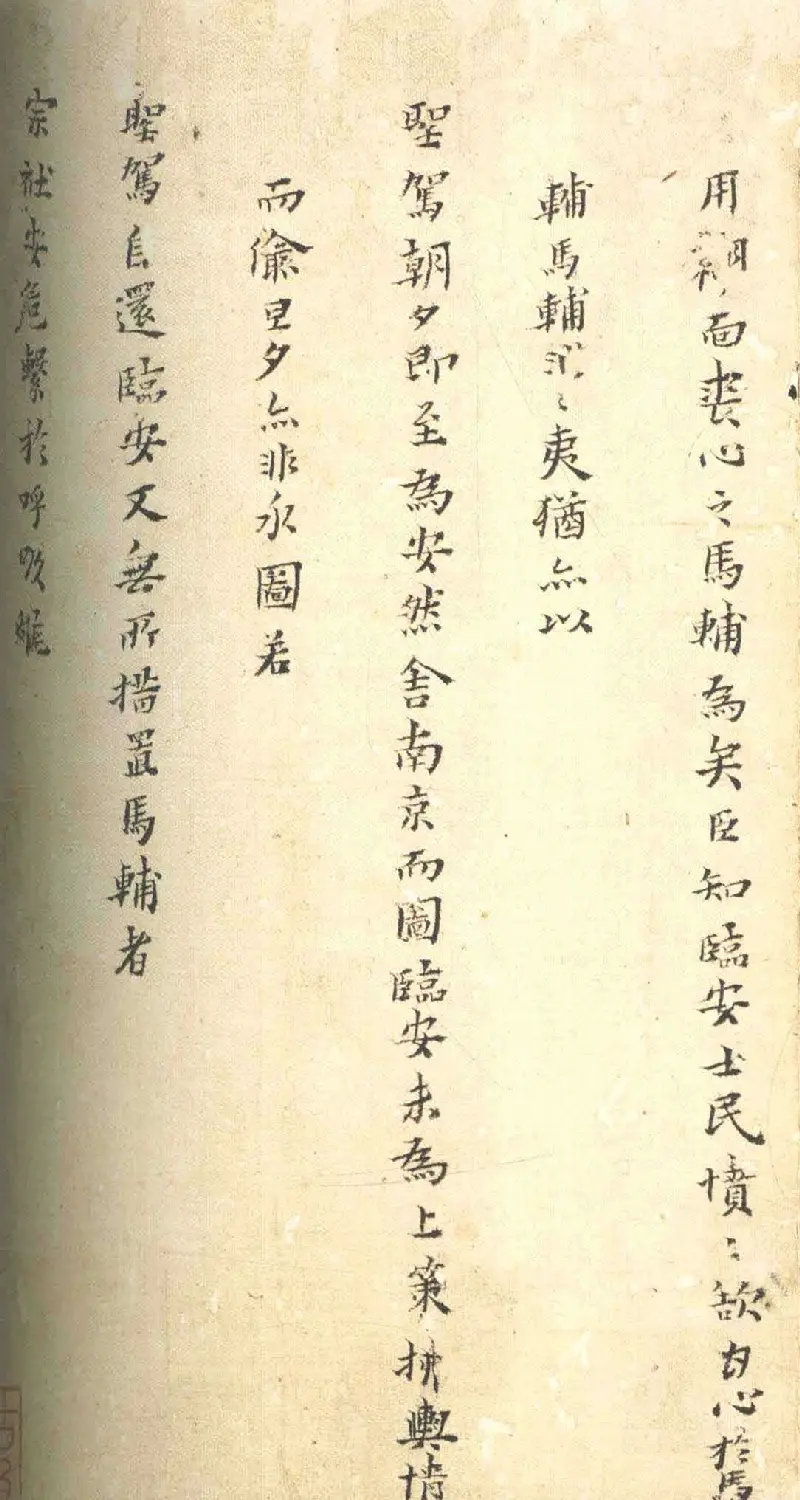 用靦面喪心之馬輔為矣臣知臨安士民憤〻欲甘心於馬
輔馬輔洸〻夷猶亦以
聖駕朝夕即至為安然舍南京而圖臨安未為上策拂輿情
而偷旦夕亦非永圖若
聖駕自還臨安又無所措置馬輔者
宗社安危繫於呼吸